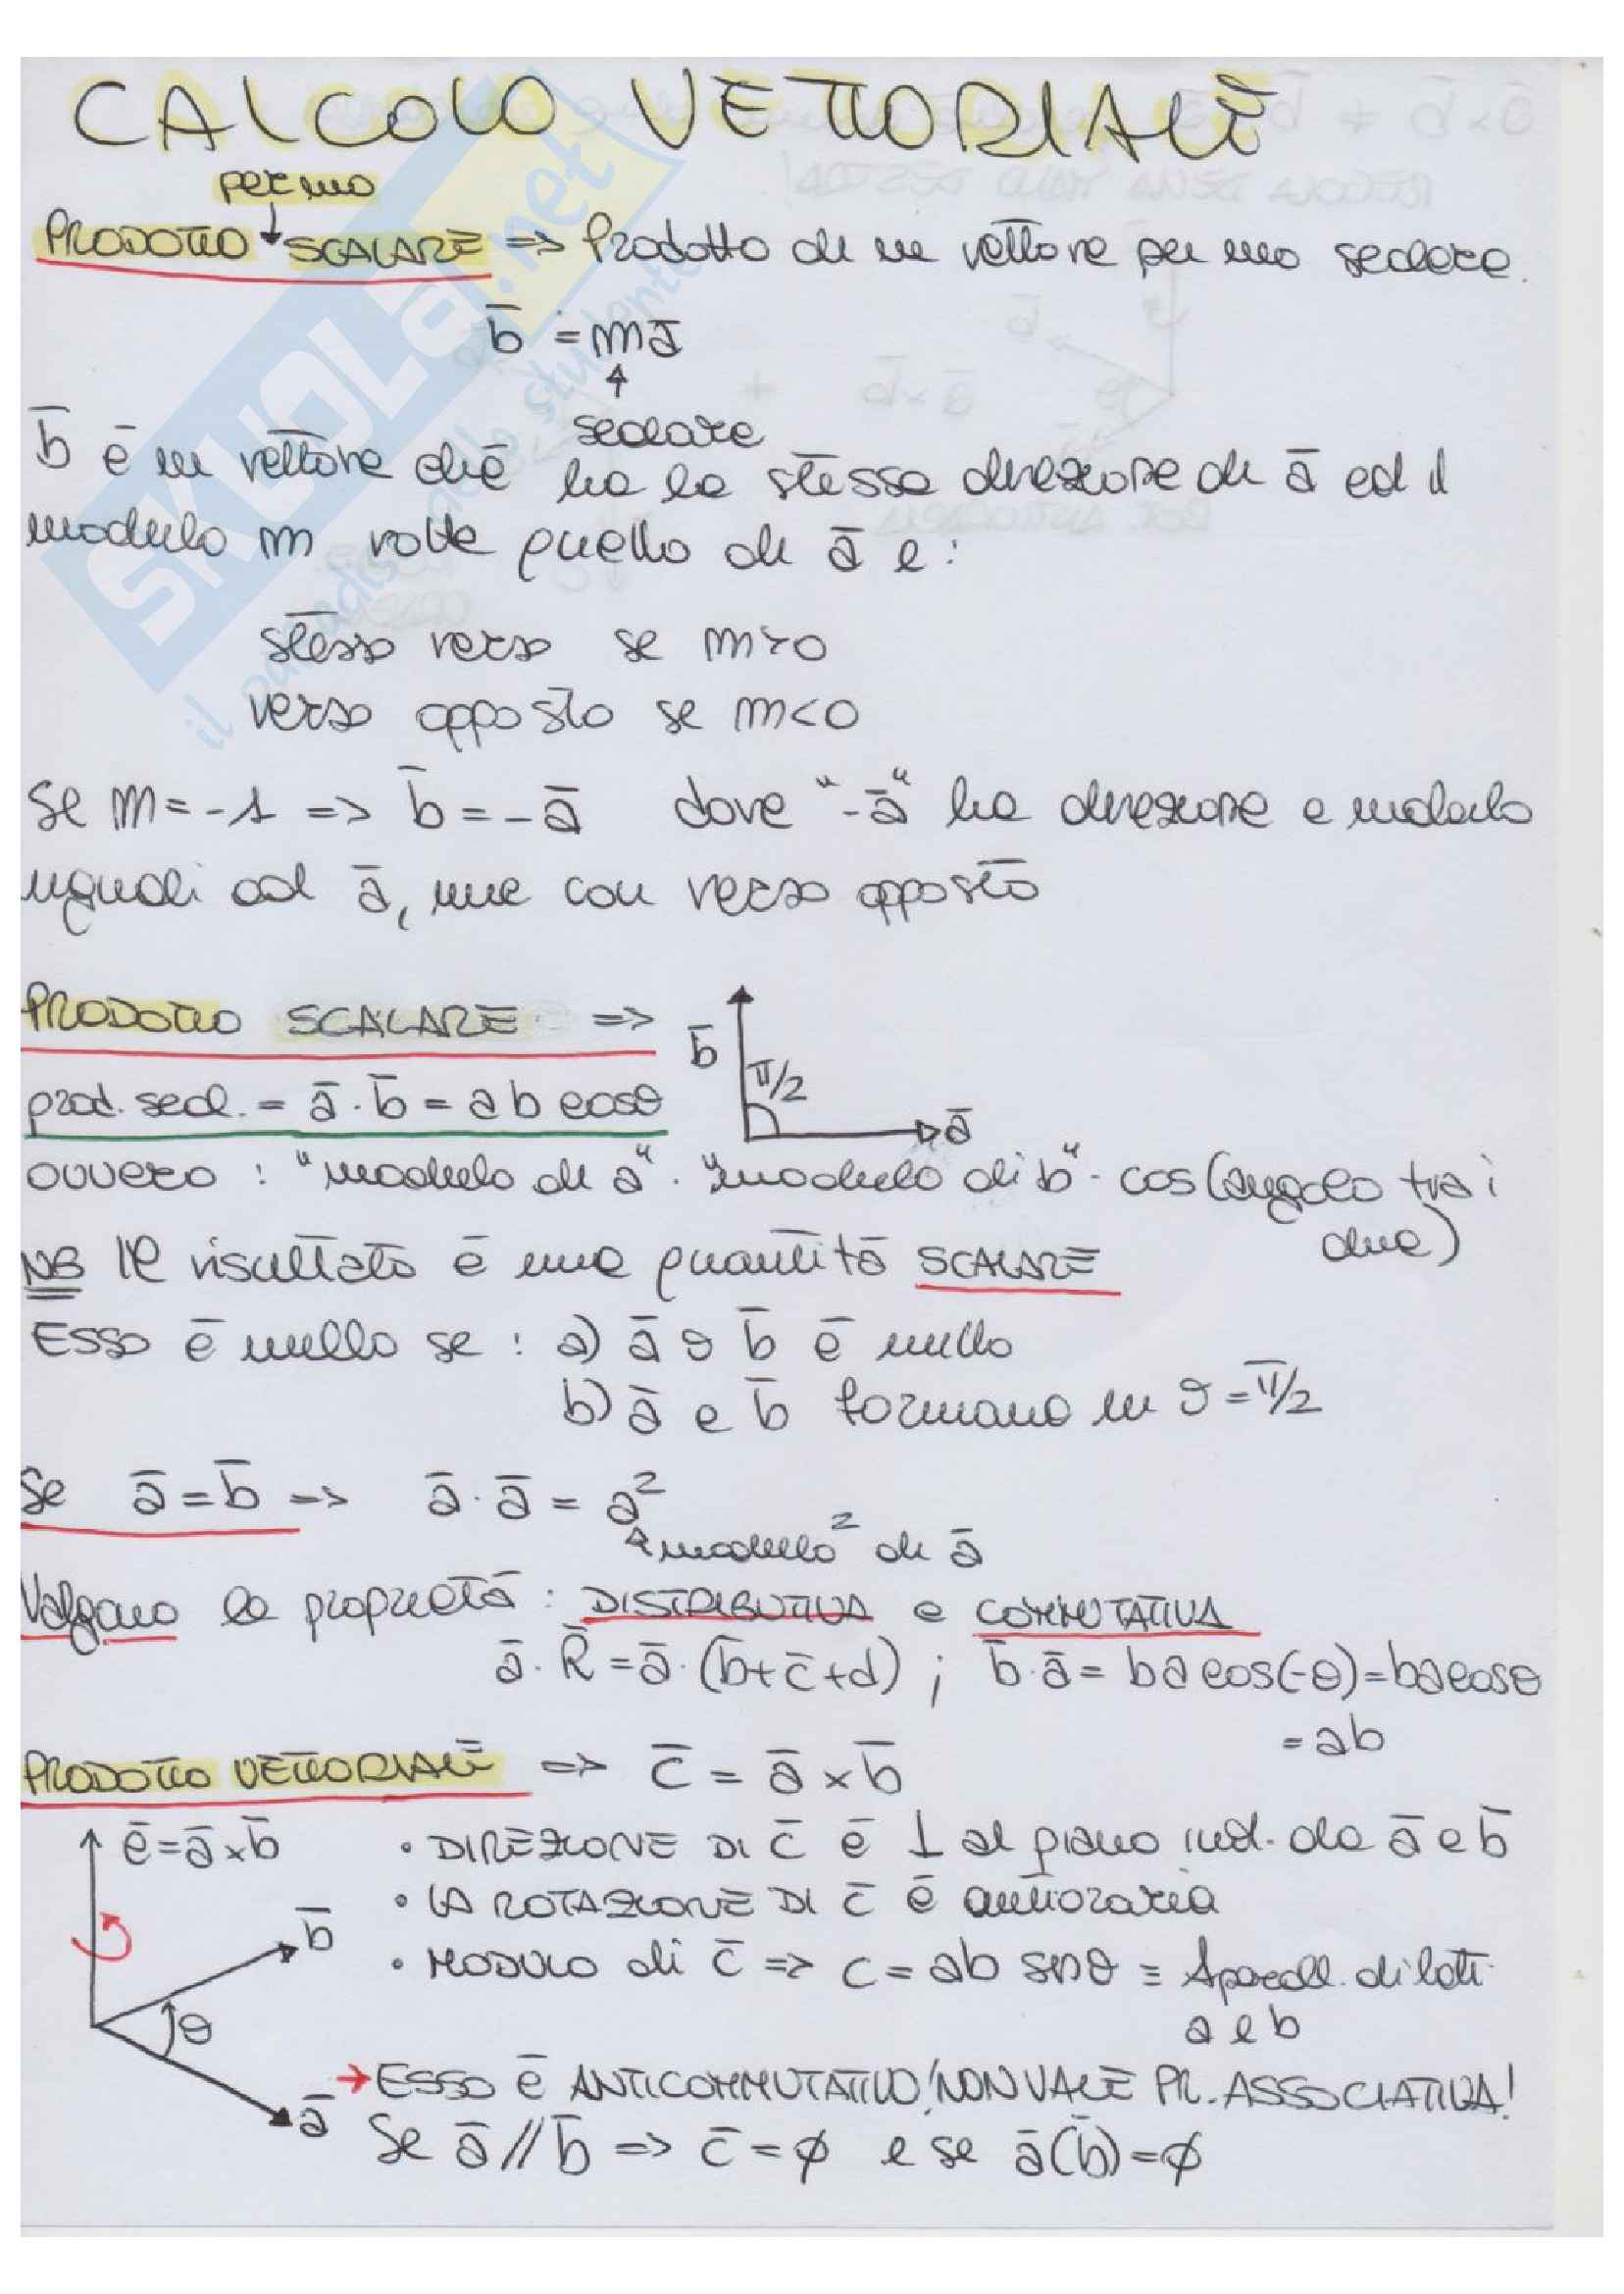 CALCOLO VETTORIALE
per uno
PRODOTTO SCALARE => Prodotto di un vettore per uno scalare.
b̄ = mā
scalare
b̄ è un vettore che ha la stessa direzione di ā ed il
modulo m volte quello di ā e:
stesso verso se m>0
verso opposto se m<0
Se m=-1 => b̄ = -ā dove "-ā" ha direzione e modulo
uguali ad ā, ma con verso opposto
PRODOTTO SCALARE =>
b̄ π/2 ā
prod. scal. = ā · b̄ = ab cosθ
ovvero : "modulo di a" · "modulo di b" · cos(angolo tra i
due)
NB Il risultato è una quantità SCALARE
Esso è nullo se : a) ā o b̄ è nullo
b) ā e b̄ formano un ϑ = π/2
Se ā = b̄ => ā · ā = a²
modulo² di ā
Valgono le proprietà : DISTRIBUTIVA e COMMUTATIVA
ā · R̄ = ā · (b̄+c̄+d) ; b̄·ā = ba cos(-θ) = ba cosθ
= ab
PRODOTTO VETTORIALE => c̄ = ā × b̄
c̄ = ā × b̄
• DIREZIONE DI c̄ è ⊥ al piano ind. da ā e b̄
• LA ROTAZIONE DI c̄ è antioraria
b̄
• MODULO di c̄ => c = ab senθ ≡ Aparall. di lati
a e b
θ
→ ESSO è ANTICOMMUTATIVO! NON VALE PR. ASSOCIATIVA!
ā
Se ā // b̄ => c̄ = ϕ e se ā(b̄) = ϕ
SKUOLA.net
il paradiso dello studente